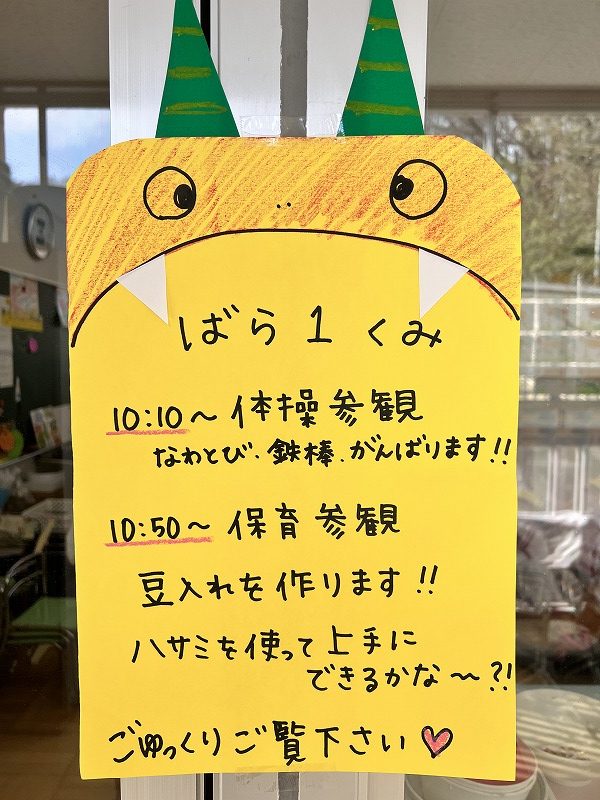 ばら1くみ
10:10～ 体操参観
なわとび、鉄棒、がんばります!!
10:50～ 保育参観
豆入れを作ります!!
ハサミを使って上手に
できるかな～?!
ごゆっくりご覧下さい♡